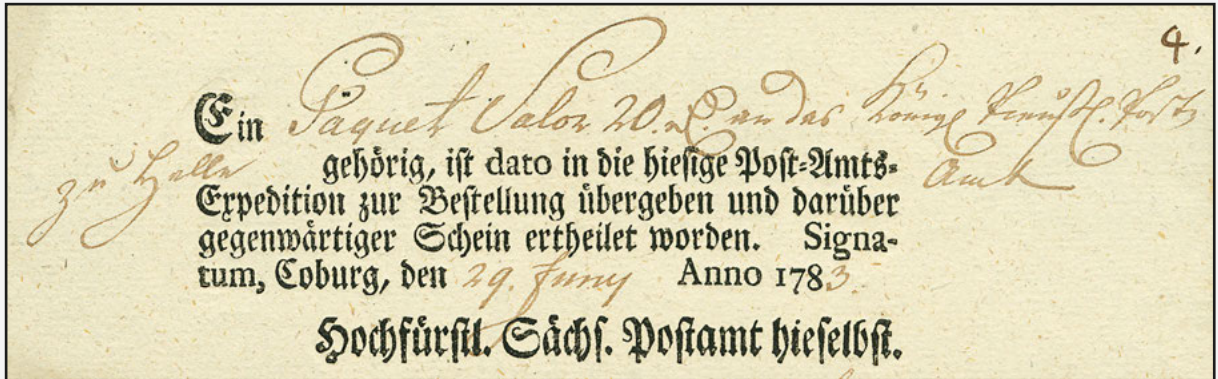 4.
Ein Paquet Valor 20. rl. an das Königl Preußl. Post
zu Halle gehörig, ist dato in die hiesige Post-Amts- Amt
Expedition zur Bestellung übergeben und darüber
gegenwärtiger Schein ertheilet worden. Signa-
tum, Coburg, den 29. Juny Anno 1783.
Hochfürstl. Sächs. Postamt hieselbst.